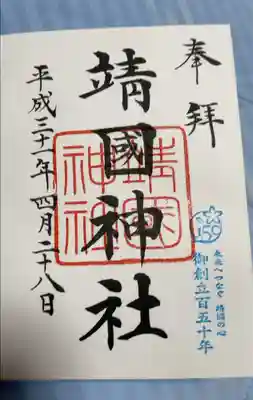 奉拝
靖國神社
靖國
神社
平成三十一年四月二十八日
150
未来へつなぐ 靖國の心
御創立百五十年